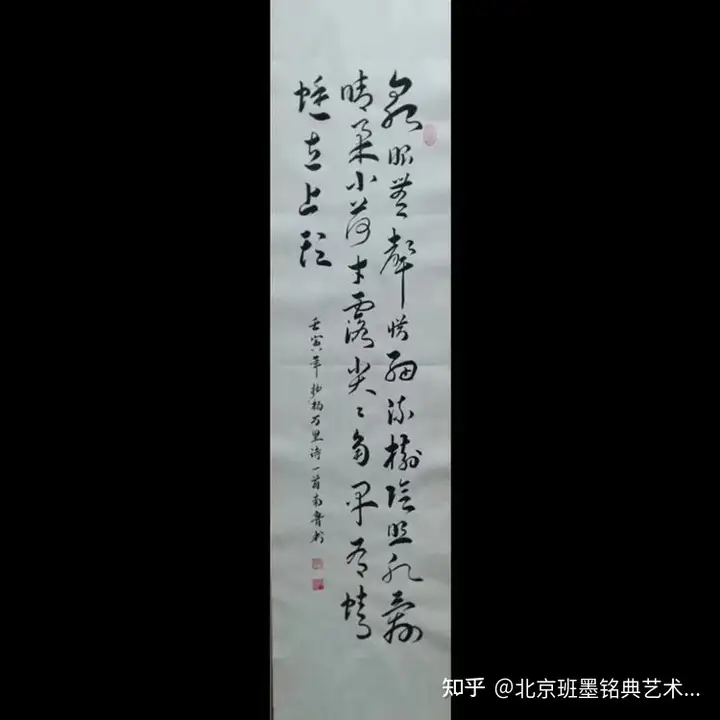 泉眼無聲惜細流樹陰照水愛
晴柔小荷才露尖〻角早有蜻
蜓立上頭
壬寅年抄杨万里诗一首南魯
知乎 @北京班墨铭典艺术...